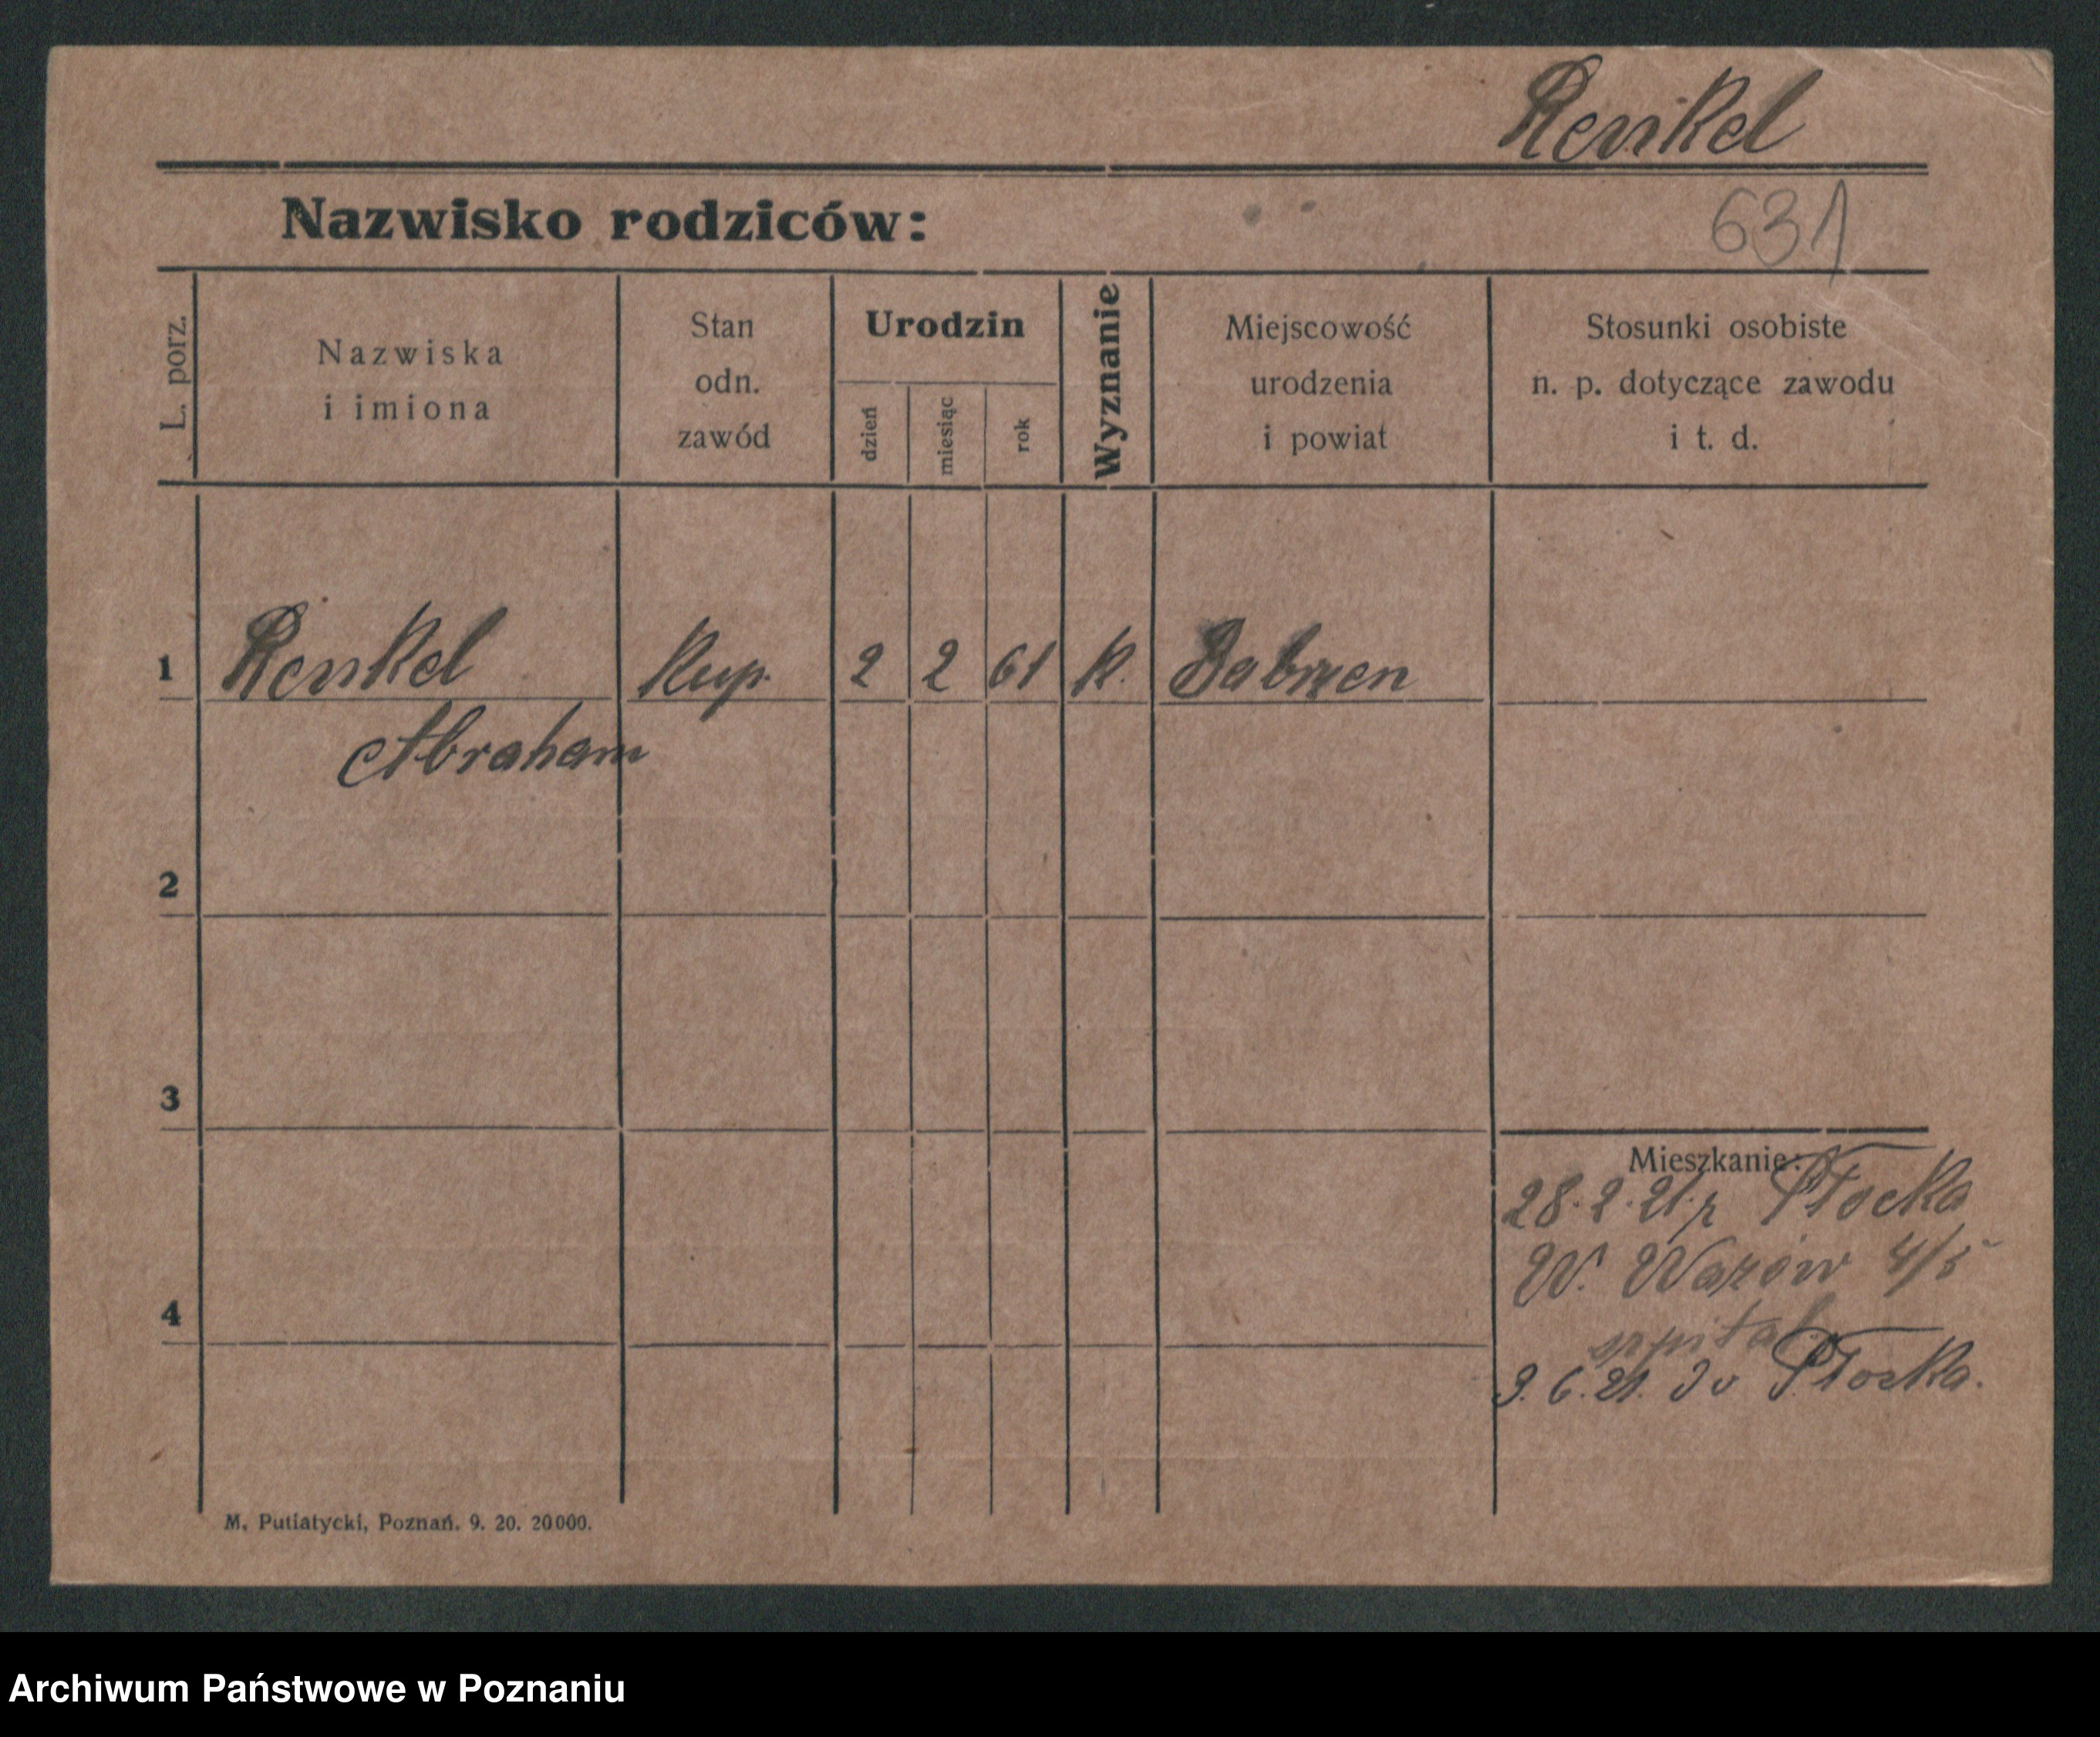 Renkel
Nazwisko rodziców:
631
L. porz.
Nazwiska
i imiona
Stan
odn.
zawód
Urodzin
dzień
miesiąc
rok
Wyznanie
Miejscowość
urodzenia
i powiat
Stosunki osobiste
n. p. dotyczące zawodu
i t. d.
1 Renkel Kup. 2 2 61 k.
Abraham
2
3
Mieszkanie:
28.2.21. z Płocka
W. Wazów 4/5
4
szpital
9.6.21. Płocka.
M. Putiatycki, Poznań. 9. 20. 20000.
Archiwum Państwowe w Poznaniu